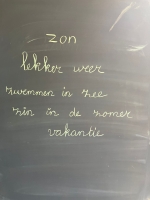 zon
lekker weer
zwemmen in zee
zin in de zomer
vakantie